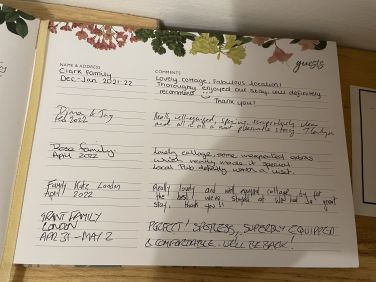 guests
NAME & ADDRESS
COMMENTS
Clark Family
Dec-Jan 2021-22
Lovely cottage, Fabulous Location!
Thoroughly enjoyed our stay and definitely
recommend
Thank you!
Diana & Jay
Feb 2022
Really well-equipped, spacious, comfortable, clean
and all in all a most pleasurable stay. Thank you
Rosa family.
April 2022
Lovely cottage, some unexpected extras
which really made it special
Local Pub definitely worth a visit.
Family Kate London
April 2022
Really lovely and well equipped cottage, by far
the best we've stayed at. We had a great
stay, thank you!!
GRANT FAMILY
LONDON
APR 31 - MAY 2
PERFECT! SPOTLESS, SUPERBLY EQUIPPED
& COMFORTABLE. WE'LL BE BACK!